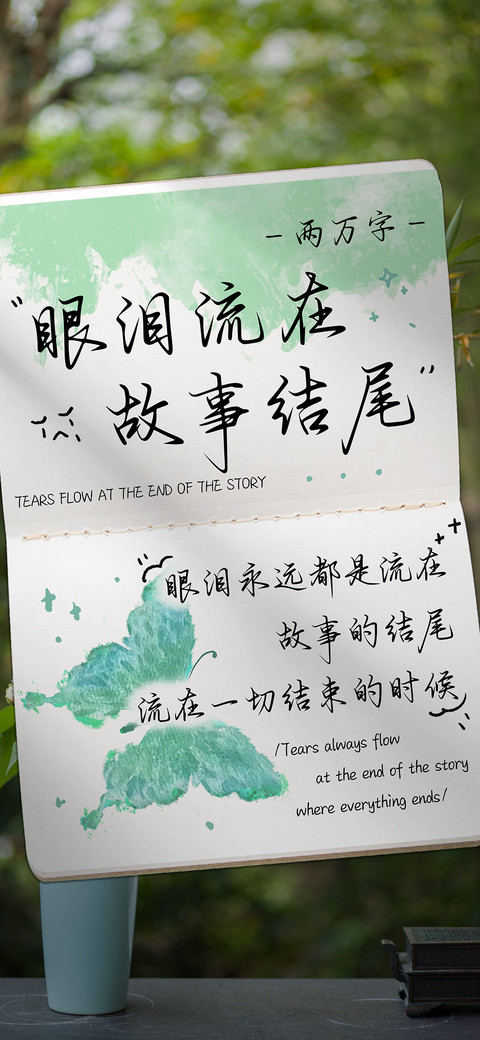 －两万字－
“眼泪流在
故事结尾”
TEARS FLOW AT THE END OF THE STORY
眼泪永远都是流在
故事的结尾
流在一切结束的时候
/Tears always flow
at the end of the story
where everything ends/